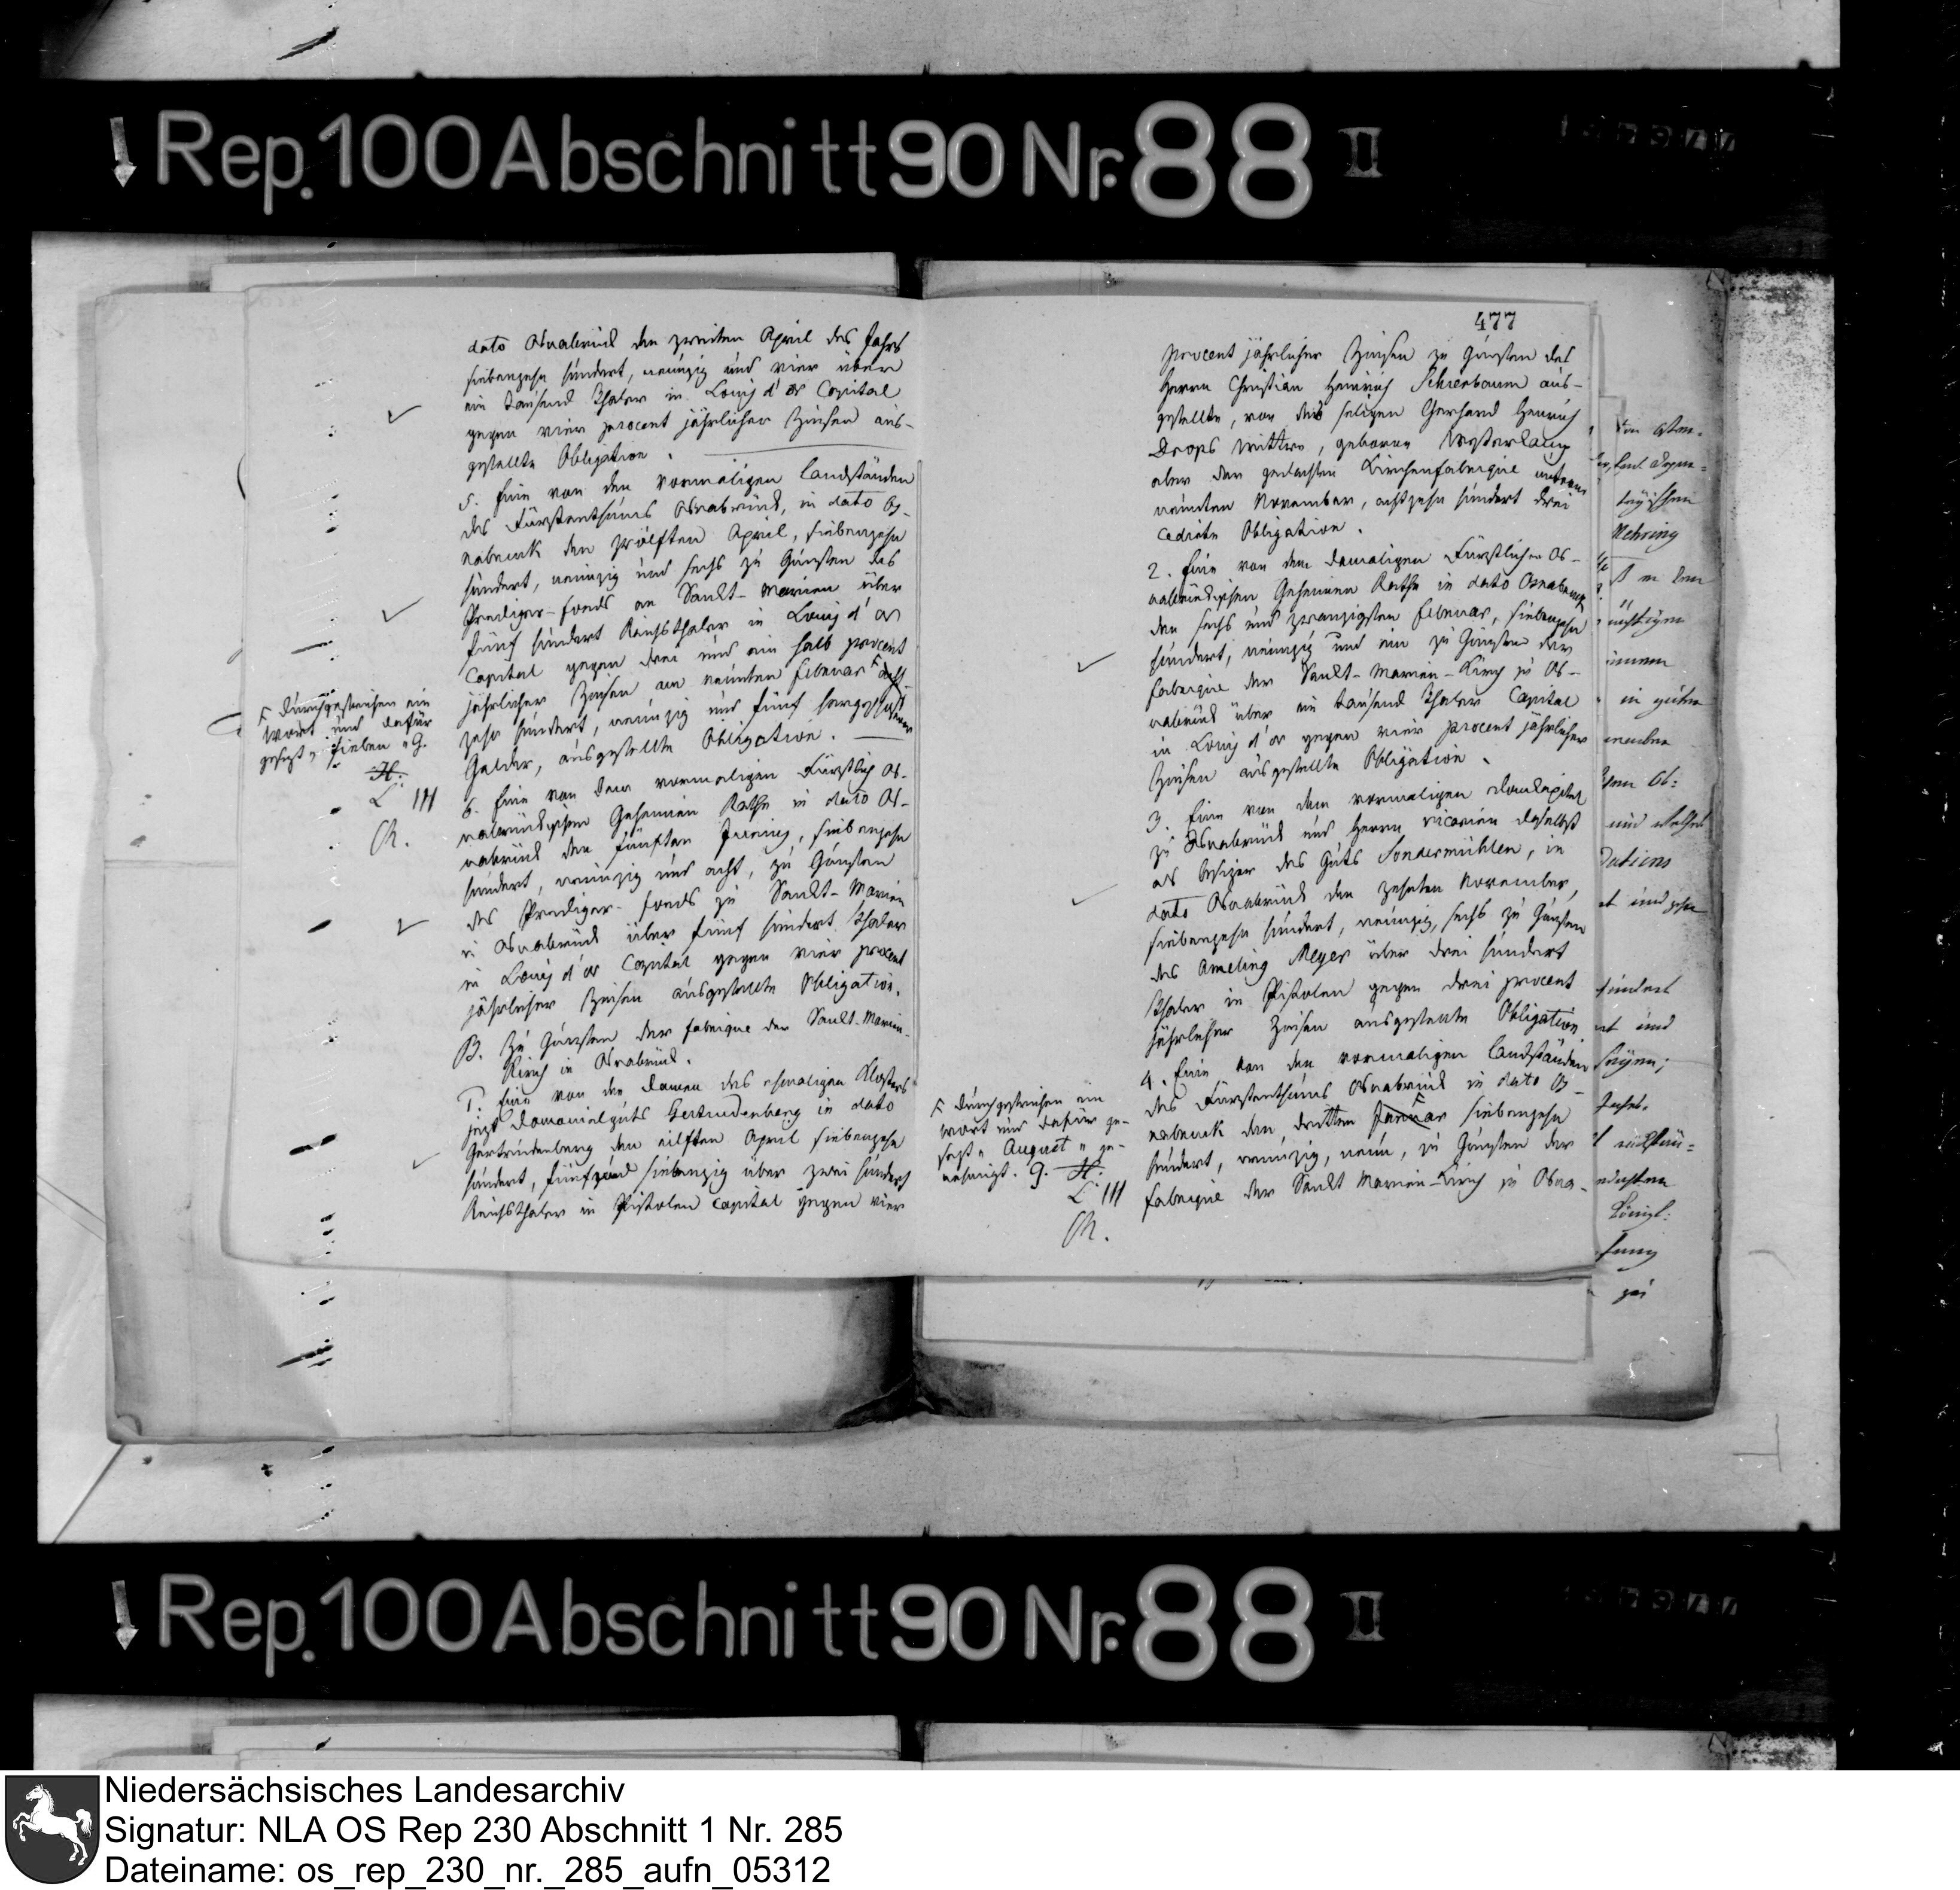 ↓ Rep. 100 Abschnitt 90 Nr. 88 II
dato Osnabrück den zweiten April des Jahrs
siebenzehn hundert, neunzig und vier über
ein tausend Thaler in Louis d'or Capital
gegen vier procent jährlicher Zinsen aus-
gestellte Obligation.
5. Eine von den vormaligen Landständen
des Fürstenthums Osnabrück, in dato Os-
nabruck den zwölften April, siebenzehn
hundert, neunzig und sechs zu Gunsten des
Prediger-fonds an Sankt-Marien über
fünf hundert Reichsthaler in Louis d'or
Capital gegen drei und ein halb procent
jährlicher Zinsen am neunten Februar acht
zehn hundert, neunzig und fünf hergeschossener
Gelder, ausgestellte Obligation.
Durchgestrichen ein
Wort und dafür
gesezt „ sieben „ G.
H.
L. III
6. Eine von dem vormaligen Fürstlich Os-
nabrückischen Geheimen Rathe in dato Os-
nabrück den fünften Junius, siebenzehn
hundert, neunzig und acht, zu Gunsten
des Prediger-fonds zu Sankt-Marien
in Osnabrück über fünf hundert Thaler
in Louis d'or Capital gegen vier procent
jährlicher Zinsen ausgestellte Obligation.
B. Zu Gunsten der fabrique der Sankt-Marien-
Kirch in Osnabrück.
1. Eine von den Damen des ehmaligen Klosters
jezt Domanialguts Gertrudenberg in dato
Gertrudenberg den eilften April siebenzehn
hundert, fünf und siebenzig über zwei hundert
Reichsthaler in Pistolen Capital gegen vier
477
procent jährlicher Zinsen zu Gunsten des
Herrn Christian Heinrich Schreibaum aus-
gestellte, von des seligen Gerhard Henrich
Drops Wittwe, geborne
aber der gedachten Kirchenfabrique unterm
neunten November, achtzehn hundert drei
cedirte Obligation.
2. Eine von dem damaligen Fürstlichen Os-
nabrückischen Geheimen Rathe in dato Osnabruck
den sechs und zwanzigsten Februar, siebenzehn
hundert, neunzig und ein zu Gunsten der
fabrique der Sankt-Marien-Kirch zu Os-
nabrück über ein tausend Thaler Capital
in Louis d'or gegen vier procent jährlicher
Zinsen ausgestellte Obligation.
3. Eine von dem vormaligen Domkapitel
zu Osnabrück und Herrn Vicarien daselbst
als Besizer des Guts Sondermühlen, in
dato Osnabrück den zehnten November,
siebenzehn hundert, neunzig, sechs zu Gunsten
des Ameling Meyer über drei hundert
Thaler in Pistolen gegen drei procent
jährlicher Zinsen ausgestellte Obligation
4. Eine von den vormaligen Landständen
des Fürstenthums Osnabrück in dato Os-
nabruck den dritten Januar siebenzehn
hundert, neunzig, neun, zu Gunsten der
fabrique der Sankt Marien-Kirch zu Osna-
Durchgestrichen ein
Wort und dafür ge-
sezt „ August „ ge-
nehmigt. G. H.
L. III
Nehring
in guten
hundert
und
zu
↓ Rep. 100 Abschnitt 90 Nr. 88 II
Niedersächsisches Landesarchiv
Signatur: NLA OS Rep 230 Abschnitt 1 Nr. 285
Dateiname: os_rep_230_nr._285_aufn_05312